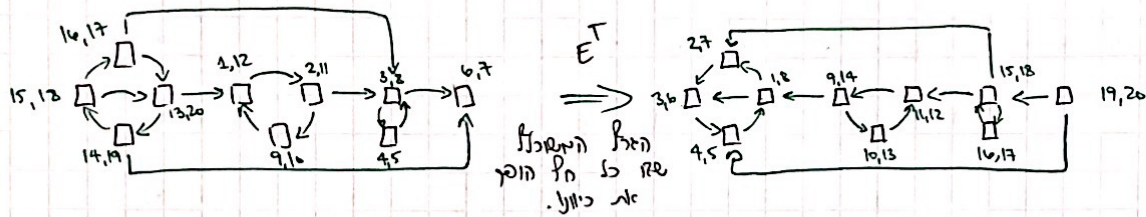 16,17
15,18
13,20
14,19
1,12
2,11
9,10
3,8
4,5
6,7
E^T
⟹
הגרף המשוחלף
שבו כל חץ הופך
את כיוונו.
2,7
3,6
1,8
4,5
9,14
11,12
10,13
15,18
16,17
19,20